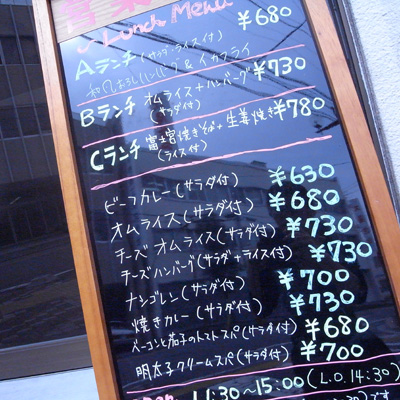 営業
Lunch Menu
Aランチ (サラダ・ライス付) ¥680
和風おろしハンバーグ & イカフライ
Bランチ オムライス+ハンバーグ ¥730
(サラダ付)
Cランチ 富士宮焼きそば+生姜焼き ¥780
(ライス付)
ビーフカレー(サラダ付) ¥630
オムライス(サラダ付) ¥680
チーズオムライス(サラダ付) ¥730
チーズハンバーグ(サラダ+ライス付) ¥730
ナシゴレン(サラダ付) ¥700
焼きカレー(サラダ付) ¥730
ベーコンと茄子のトマトスパ(サラダ付) ¥680
明太子クリームスパ(サラダ付) ¥700
11:30~15:00(L.O.14:30)
:30)です